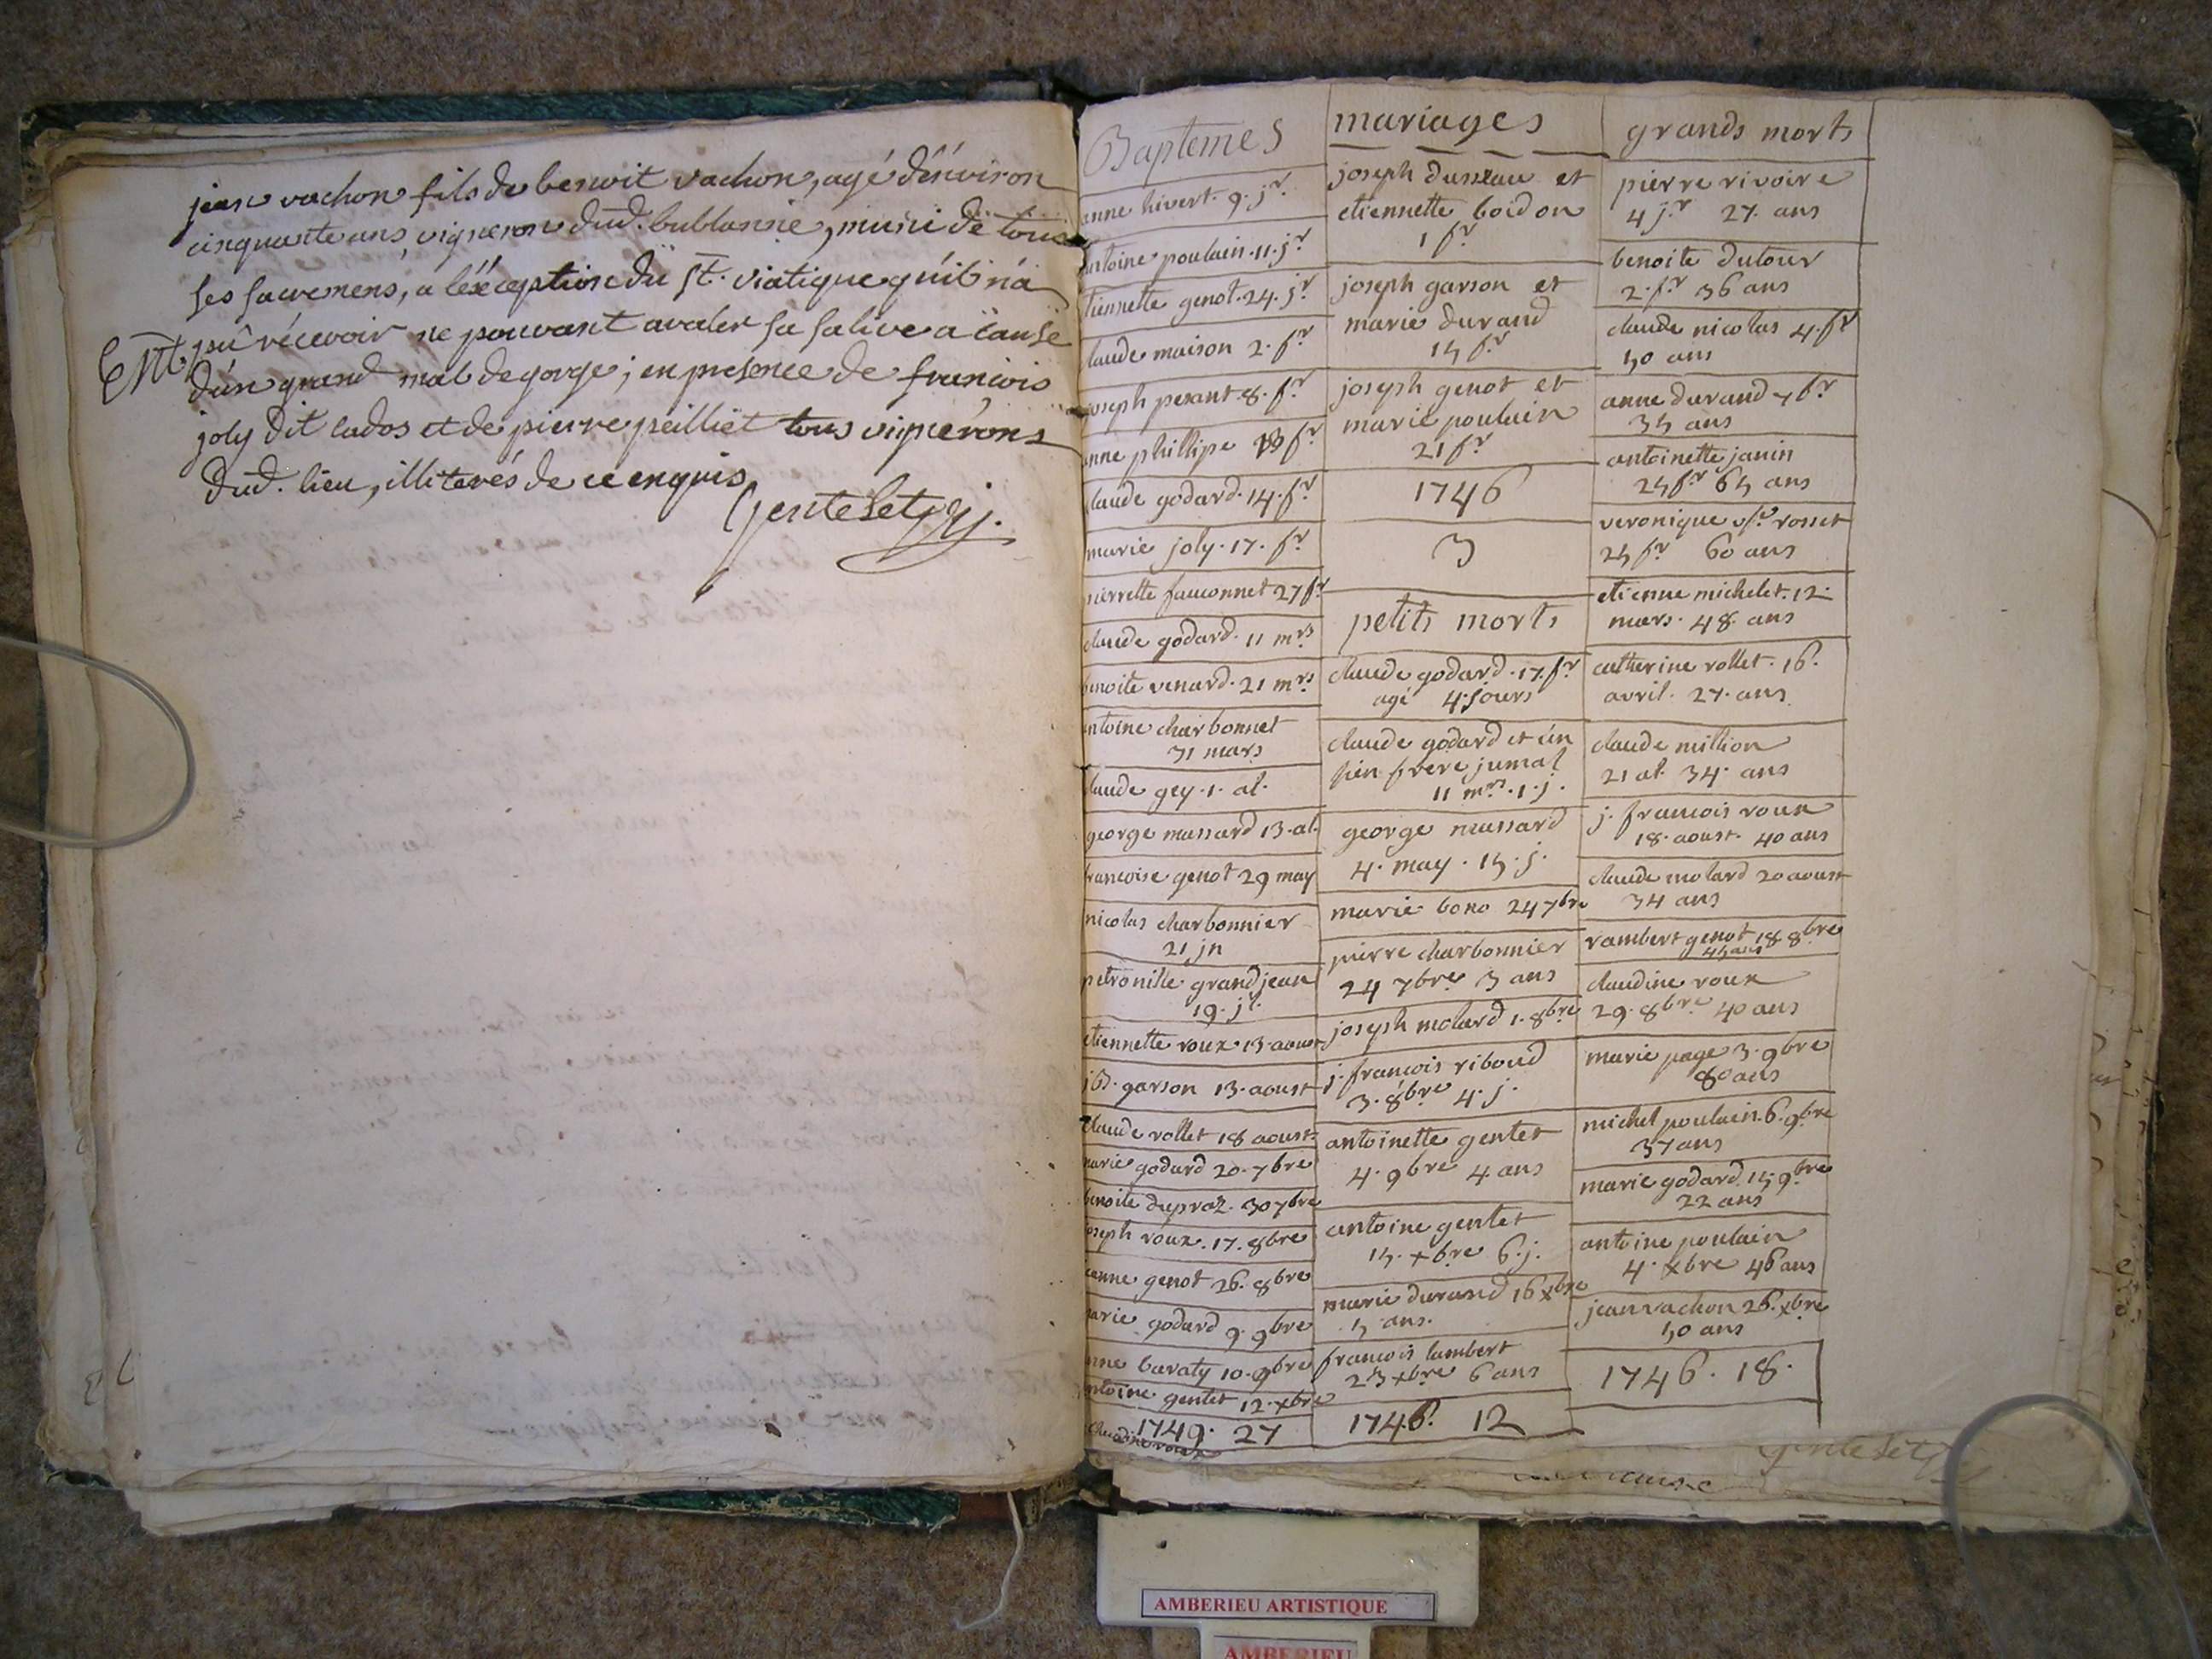 jean vachon fils de benoit vachon, agé dénviron
cinquante ans, vigneron dud. bublanne, muni de tous
ses sacremens, a léxception du st. viatique quil n'a
pû récevoir ne pouvant avaler sa salive a cause
Ent.
d'un grand mal de gorge; en presence de francois
joly dit cados et de pierre peilliet tous vignerons
dud. lieu, illiterés de ce enquis
Baptemes
anne hivert. 9. jr.
antoine poulain. 11. jr.
tiennette genot. 24. jr
laude maison 2. fr
joseph pesant. 8. fr.
anne phillipe 13 fr.
laude godard. 14. fr
marie joly. 17. fr.
pierrette fauconnet 27 fr
claude godard. 11 mrs
benoite venard. 21 mrs
antoine charbonnet
31 mars
laude gey. 1. al.
george massard 13. al.
francoise genot 29 may
nicolas charbonnier
21 jn
petronille grandjean
19. jl.
etiennette roux. 13. aoust
jb. garson 13. aoust
claude rollet 18 aoust
marie godard 20. 7bre
benoite dupraz. 30 7bre
joseph roux. 17. 8bre
jeanne genot 26. 8bre
marie godard 9. 9bre
anne baraty 10. 9bre
antoine gentet 12. xbre
1749. 27
claudine roux
mariages
joseph dusseau et
etiennette boidon
1 fr
joseph garson et
marie durand
15 fr
joseph genot et
marie poulain
21 fr
1746
3
petits morts
claude godard. 17. fr
agé 4 jours
claude godard et un
sien frere jumal
11 mrs. 1. j.
george massard
4. may. 15. j.
marie bono 24 7bre
pierre charbonnier
24 7bre 3 ans
joseph molard 1. 8bre
j. francois riboud
3. 8bre 4. j.
antoinette gentet
4. 9bre 4 ans
antoine gentet
15. xbre 6. j.
marie durand 16 xbre
5 ans.
francois lambert
23 xbre 6 ans
1746. 12
grands morts
pierre rivoire
4 jr 27. ans
benoite dutour
2. fr 36 ans
claude nicolas 4. fr
50 ans
anne durand 7 fr
35 ans
antoinette janin
25 fr 65 ans
veronique rosset
25 fr 60 ans
etienne michelet. 12.
mars. 48. ans
catherine rollet. 16.
avril. 27. ans
claude million
21 al. 34. ans
j. francois roux
18. aoust. 40 ans
claude molard 20 aoust
34 ans
rambert genot 18 8bre
45 ans
claudine roux
29. 8bre 40 ans
marie page 3. 9bre
80 ans
michel poulain. 6. 9bre
37 ans
marie godard. 15 9bre
22 ans
antoine poulain
4. xbre 46 ans
jean vachon 26. xbre
50 ans
1746. 18.
AMBERIEU ARTISTIQUE
AMBERIEU